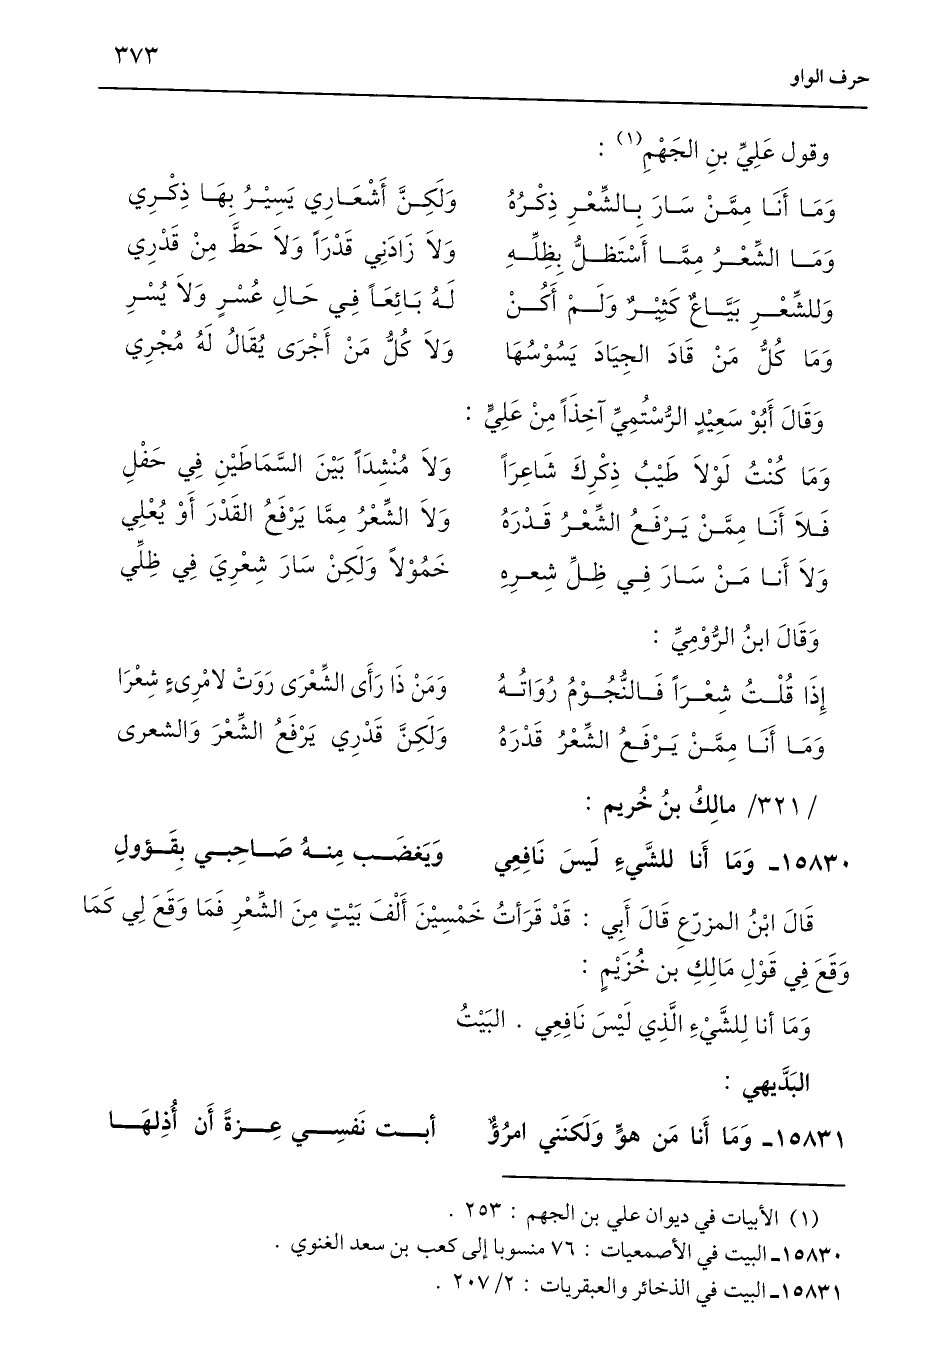 ٣٧٣
حرف الواو
وقول عَلِيِّ بنِ الجَهْمِ(١) :
وَمَا أَنَا مِمَّنْ سَارَ بِالشِّعْرِ ذِكْرُهُ وَلَكِنَّ أَشْعَارِي يَسِيْرُ بِهَا ذِكْرِي
وَمَا الشِّعْرُ مِمَّا أَسْتَظلُّ بِظِلِّهِ وَلاَ زَادَنِي قَدْرَاً وَلاَ حَطَّ مِنْ قَدْرِي
وَللشِّعْرِ بَيَّاعٌ كَثِيْرٌ وَلَمْ أَكُنْ لَهُ بَائِعَاً فِي حَالِ عُسْرٍ وَلاَ يُسْرِ
وَمَا كُلُّ مَنْ قَادَ الجِيَادَ يَسُوْسُهَا وَلاَ كُلُّ مَنْ أَجْرَى يُقَالُ لَهُ مُجْرِي
وَقَالَ أَبُوْ سَعِيْدٍ الرُّسْتُمِيِّ آخِذَاً مِنْ عَلِيٍّ :
وَمَا كُنْتُ لَوْلاَ طَيْبُ ذِكْرِكَ شَاعِرَاً وَلاَ مُنْشِدَاً بَيْنَ السَّمَاطَيْنِ فِي حَفْلِ
فَلاَ أَنَا مِمَّنْ يَرْفَعُ الشِّعْرُ قَدْرَهُ وَلاَ الشِّعْرُ مِمَّا يَرْفَعُ القَدْرَ أَوْ يُعْلِي
وَلاَ أَنَا مَنْ سَارَ فِي ظِلِّ شِعرِهِ خَمُوْلاً وَلَكِنْ سَارَ شِعْرِيَ فِي ظِلِّي
وَقَالَ ابنُ الرُّوْمِيِّ :
إِذَا قُلْتُ شِعْرَاً فَالنُّجُوْمُ رُوَاتُهُ وَمَنْ ذَا رَأَى الشِّعْرَى رَوَتْ لامْرِىءٍ شِعْرَا
وَمَا أَنَا مِمَّنْ يَرْفَعُ الشِّعْرُ قَدْرَهُ وَلَكِنَّ قَدْرِي يَرْفَعُ الشِّعْرَ وَالشعرى
/ ٣٢١/ مالِكُ بنُ خُريم :
١٥٨٣٠ـ وَمَا أَنا للشَّيءِ لَيسَ نَافِعِي وَيَغضَب مِنهُ صَاحِبي بِقَؤولِ
قَالَ ابْنُ المزرّعِ قَالَ أَبِي : قَدْ قَرَأتُ خَمْسِيْنَ أَلْفَ بَيْتٍ مِنَ الشِّعْرِ فَمَا وَقَعَ لِي كَمَا
وَقَعَ فِي قَوْلِ مَالِكِ بن خُزَيْمٍ :
وَمَا أنا لِلشَّيْءِ الَّذِي لَيْسَ نَافِعِي . البَيْتُ
البَدَّيهي :
١٥٨٣١ـ وَمَا أَنا مَن هوٍّ وَلَكنَني امرُؤٌ أبت نَفسِي عِزةً أَن أُذِلهَا
(١) الأبيات في ديوان علي بن الجهم : ٢٥٣ .
١٥٨٣٠ـ البيت في الأصمعيات : ٧٦ منسوبا إلى كعب بن سعد الغنوي .
١٥٨٣١ـ البيت في الذخائر والعبقريات : ٢/ ٢٠٧ .